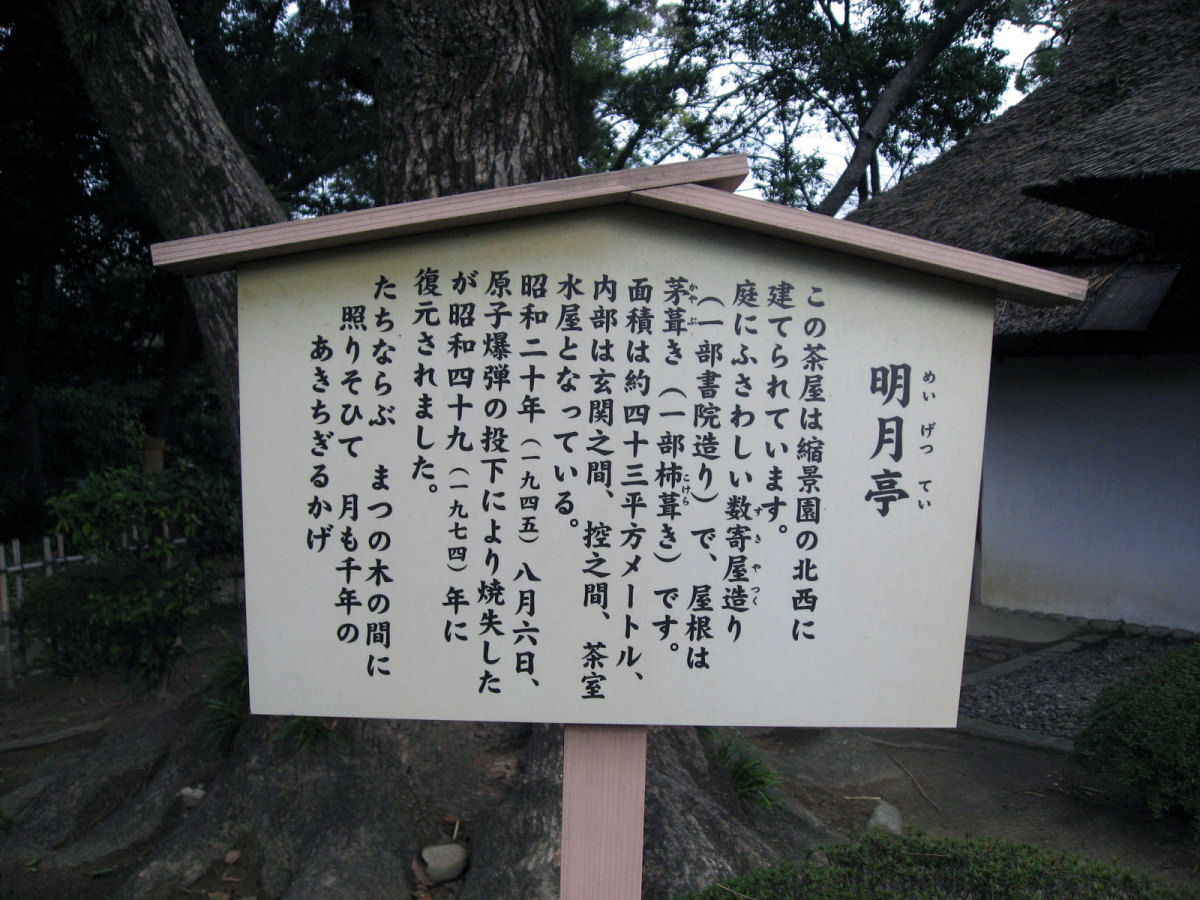 明月亭
めいげつてい
この茶屋は縮景園の北西に
建てられています。
庭にふさわしい数寄屋造り
すきやつく
（一部書院造り）で、屋根は
茅葺き（一部柿葺き）です。
かやぶ
こけら
面積は約四十三平方メートル、
内部は玄関之間、控之間、茶室
水屋となっている。
昭和二十年（一九四五）八月六日、
原子爆弾の投下により焼失した
が昭和四十九（一九七四）年に
復元されました。
たちならぶ　まつの木の間に
照りそひて　月も千年の
あきちぎるかげ